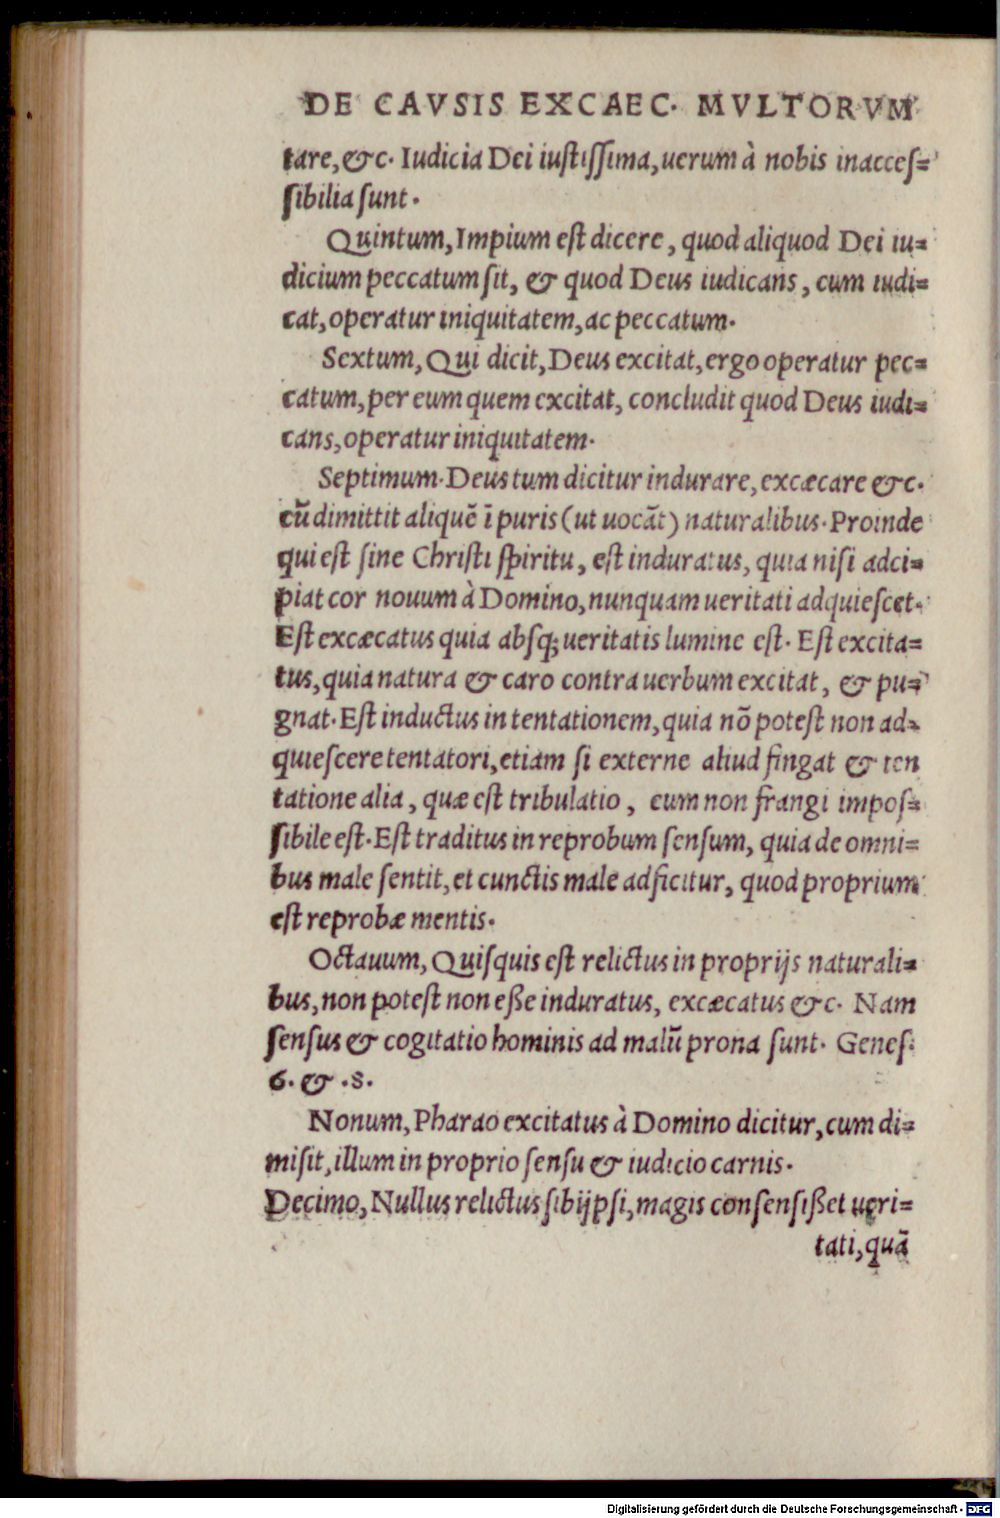 DE CAVSIS EXCAEC. MVLTORVM
tare, &c. Iudicia Dei iustissima, uerum à nobis inacces=
sibilia sunt.
Quintum, Impium est dicere, quod aliquod Dei iu=
dicium peccatum sit, & quod Deus iudicans, cum iudi=
cat, operatur iniquitatem, ac peccatum.
Sextum, Qui dicit, Deus excitat, ergo operatur pec=
catum, per eum quem excitat, concludit quod Deus iudi=
cans, operatur iniquitatem.
Septimum. Deus tum dicitur indurare, excæcare &c.
cũ dimittit aliquẽ ĩ puris (ut uocãt) naturalibus. Proinde
qui est sine Christi spiritu, est induratus, quia nisi adci=
piat cor nouum à Domino, nunquam ueritati adquiescet.
Est excæcatus quia absq; ueritatis lumine est. Est excita=
tus, quia natura & caro contra uerbum excitat, & pu=
gnat. Est inductus in tentationem, quia nõ potest non ad=
quiescere tentatori, etiam si externe aliud fingat & ten
tatione alia, quæ est tribulatio, eum non frangi impos=
sibile est. Est traditus in reprobum sensum, quia de omni=
bus male sentit, et cunctis male adficitur, quod proprium
est reprobæ mentis.
Octauum, Quisquis est relictus in proprijs naturali=
bus, non potest non eße induratus, excæcatus &c. Nam
sensus & cogitatio hominis ad malũ prona sunt. Genes.
6. & .8.
Nonum, Pharao excitatus à Domino dicitur, cum di=
misit, illum in proprio sensu & iudicio carnis.
Decimo, Nullus relictus sibijpsi, magis consensißet ueri=
tati, quã
Digitalisierung gefördert durch die Deutsche Forschungsgemeinschaft - DFG